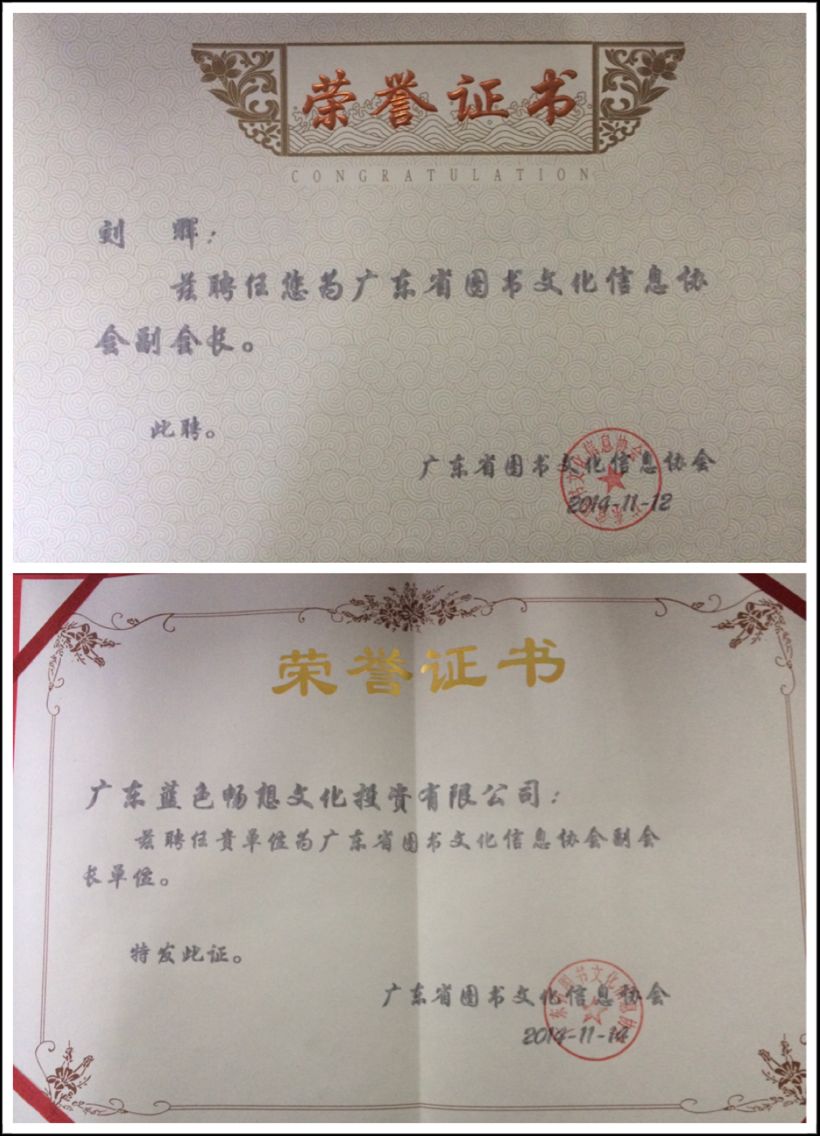 荣誉证书
CONGRATULATION
刘 晖：
兹聘任您为广东省图书文化信息协
会副会长。
此聘。
广东省图书文化信息协会
2014-11-12
荣誉证书
广东蓝色畅想文化投资有限公司：
兹聘任贵单位为广东省图书文化信息协会副会
长单位。
特发此证。
广东省图书文化信息协会
2014-11-14